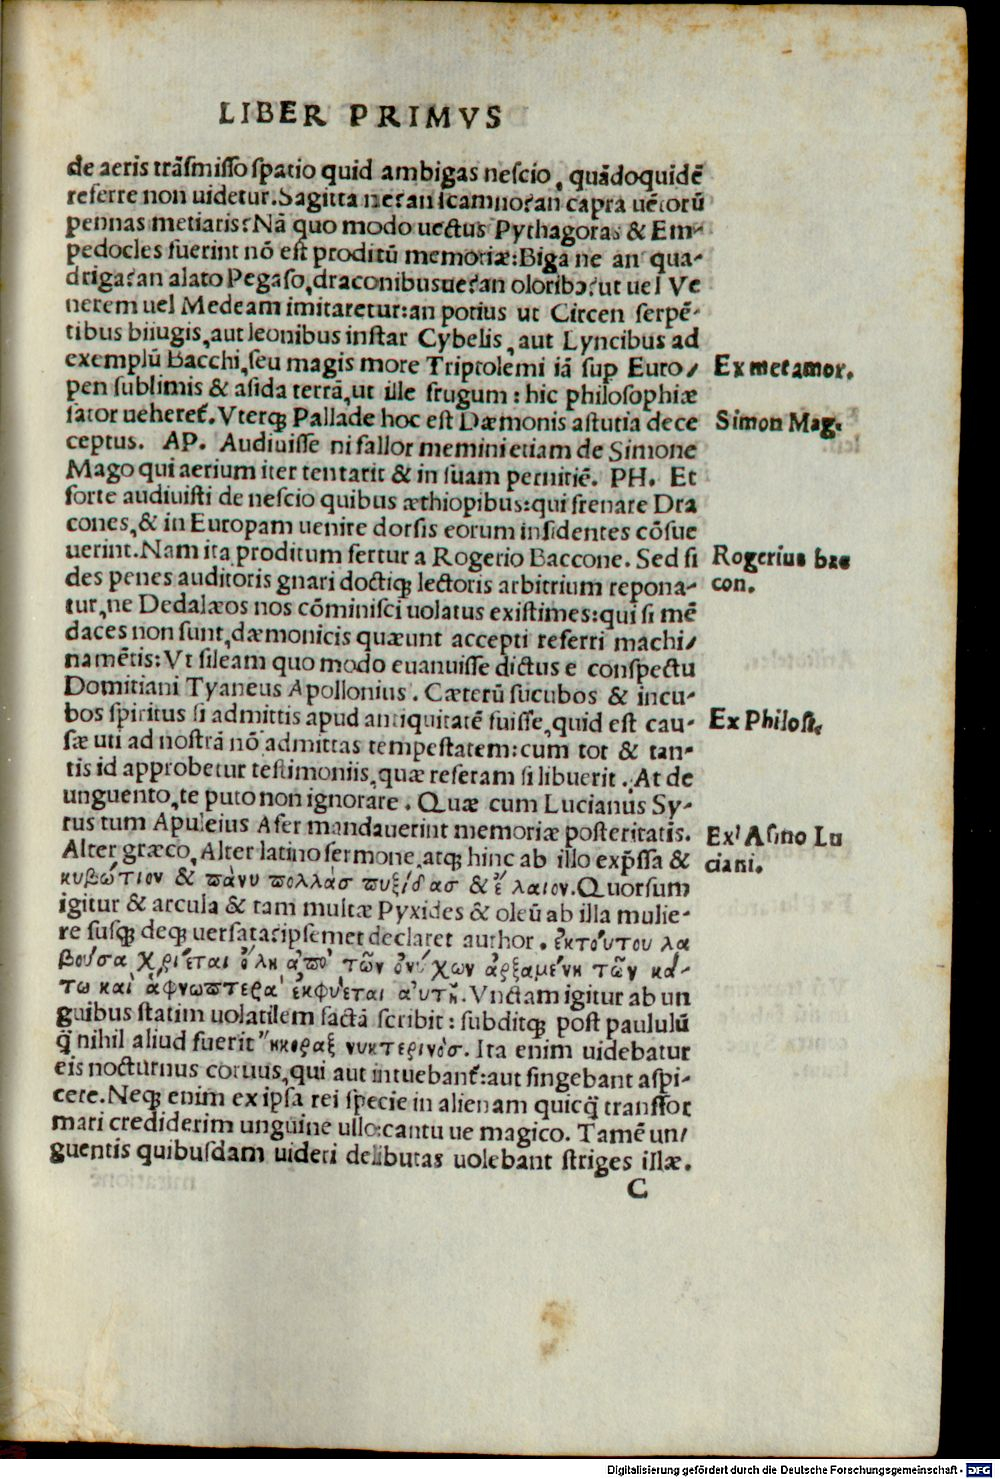 LIBER PRIMVS
de aeris trāſmiſſo ſpatio quid ambigas neſcio, quādoquidē
referre non uidetur. Sagitta ne? an ſcamno? an capra uētorū
pennas metiaris? Nā quo modo uectus Pythagoras & Em-
pedocles fuerint nō eſt proditū memoriæ: Biga ne an qua-
driga? an alato Pegaſo, draconibusue? an oloribꝰ? ut uel Ve
nerem uel Medeam imitaretur: an potius ut Circen ſerpē-
tibus biiugis, aut leonibus inſtar Cybelis, aut Lyncibus ad
exemplū Bacchi, ſeu magis more Triptolemi iā ſup Euro/
Ex metamor.
pen ſublimis & aſida terrā, ut ille frugum: hic philoſophiæ
ſator ueheret᷑. Vterqꝫ Pallade hoc eſt Dæmonis aſtutia dece
Simon Mag.
ceptus. AP. Audiuiſſe ni fallor memini etiam de Simone
Mago qui aerium iter tentarit & in ſuam pernitiē. PH. Et
forte audiuiſti de neſcio quibus æthiopibus: qui frenare Dra
cones, & in Europam uenire dorſis eorum inſidentes cōſue
uerint. Nam ita proditum fertur a Rogerio Baccone. Sed ſi
Rogerius bac
des penes auditoris gnari doctiqꝫ lectoris arbitrium repona-
con.
tur, ne Dedalæos nos cōminiſci uolatus exiſtimes: qui ſi mē
daces non ſunt, dæmonicis quæunt accepti referri machi/
namētis: Vt ſileam quo modo euanuiſſe dictus e conſpectu
Domitiani Tyaneus Apollonius. Cæterū ſucubos & incu-
bos ſpiritus ſi admittis apud antiquitatē fuiſſe, quid eſt cau-
Ex Philoſt.
ſæ uti ad noſtrā nō admittas tempeſtatem: cum tot & tan-
tis id approbetur teſtimoniis, quæ referam ſi libuerit. At de
unguento, te puto non ignorare. Quæ cum Lucianus Sy-
rus tum Apuleius Afer mandauerint memoriæ poſteritatis.
Ex Aſino Lu
Alter græco, Alter latino ſermone, atqꝫ hinc ab illo exp̄ſſa &
ciani.
κυβώτιον & πάνυ πολλὰσ πυξίδασ & ἔλαιον. Quorſum
igitur & arcula & tam multæ Pyxides & oleū ab illa mulie-
re ſuſqꝫ deqꝫ uerſata? ipſemet declaret author. ἐκτούτου λα
βοῦσα χρίεται ὅλη ἀπὸ τῶν ὀνύχων ἀρξαμένη τῶν κά-
τω καὶ ἄφνωπτερὰ ἐκφύεται αὐτῇ. Vnctam igitur ab un
guibus ſtatim uolatilem factā ſcribit: ſubditqꝫ poſt paululū
q̄ nihil aliud fuerit ἢκόραξ νυκτερινόσ. Ita enim uidebatur
eis nocturnus coruus, qui aut intuebant᷑: aut fingebant aſpi-
cere. Neqꝫ enim ex ipſa rei ſpecie in alienam quicq̄ transfor
mari crediderim unguine ullo: cantu ue magico. Tamē un/
guentis quibuſdam uideri delibutas uolebant ſtriges illæ.
C
Digitalisierung gefördert durch die Deutsche Forschungsgemeinschaft - DFG